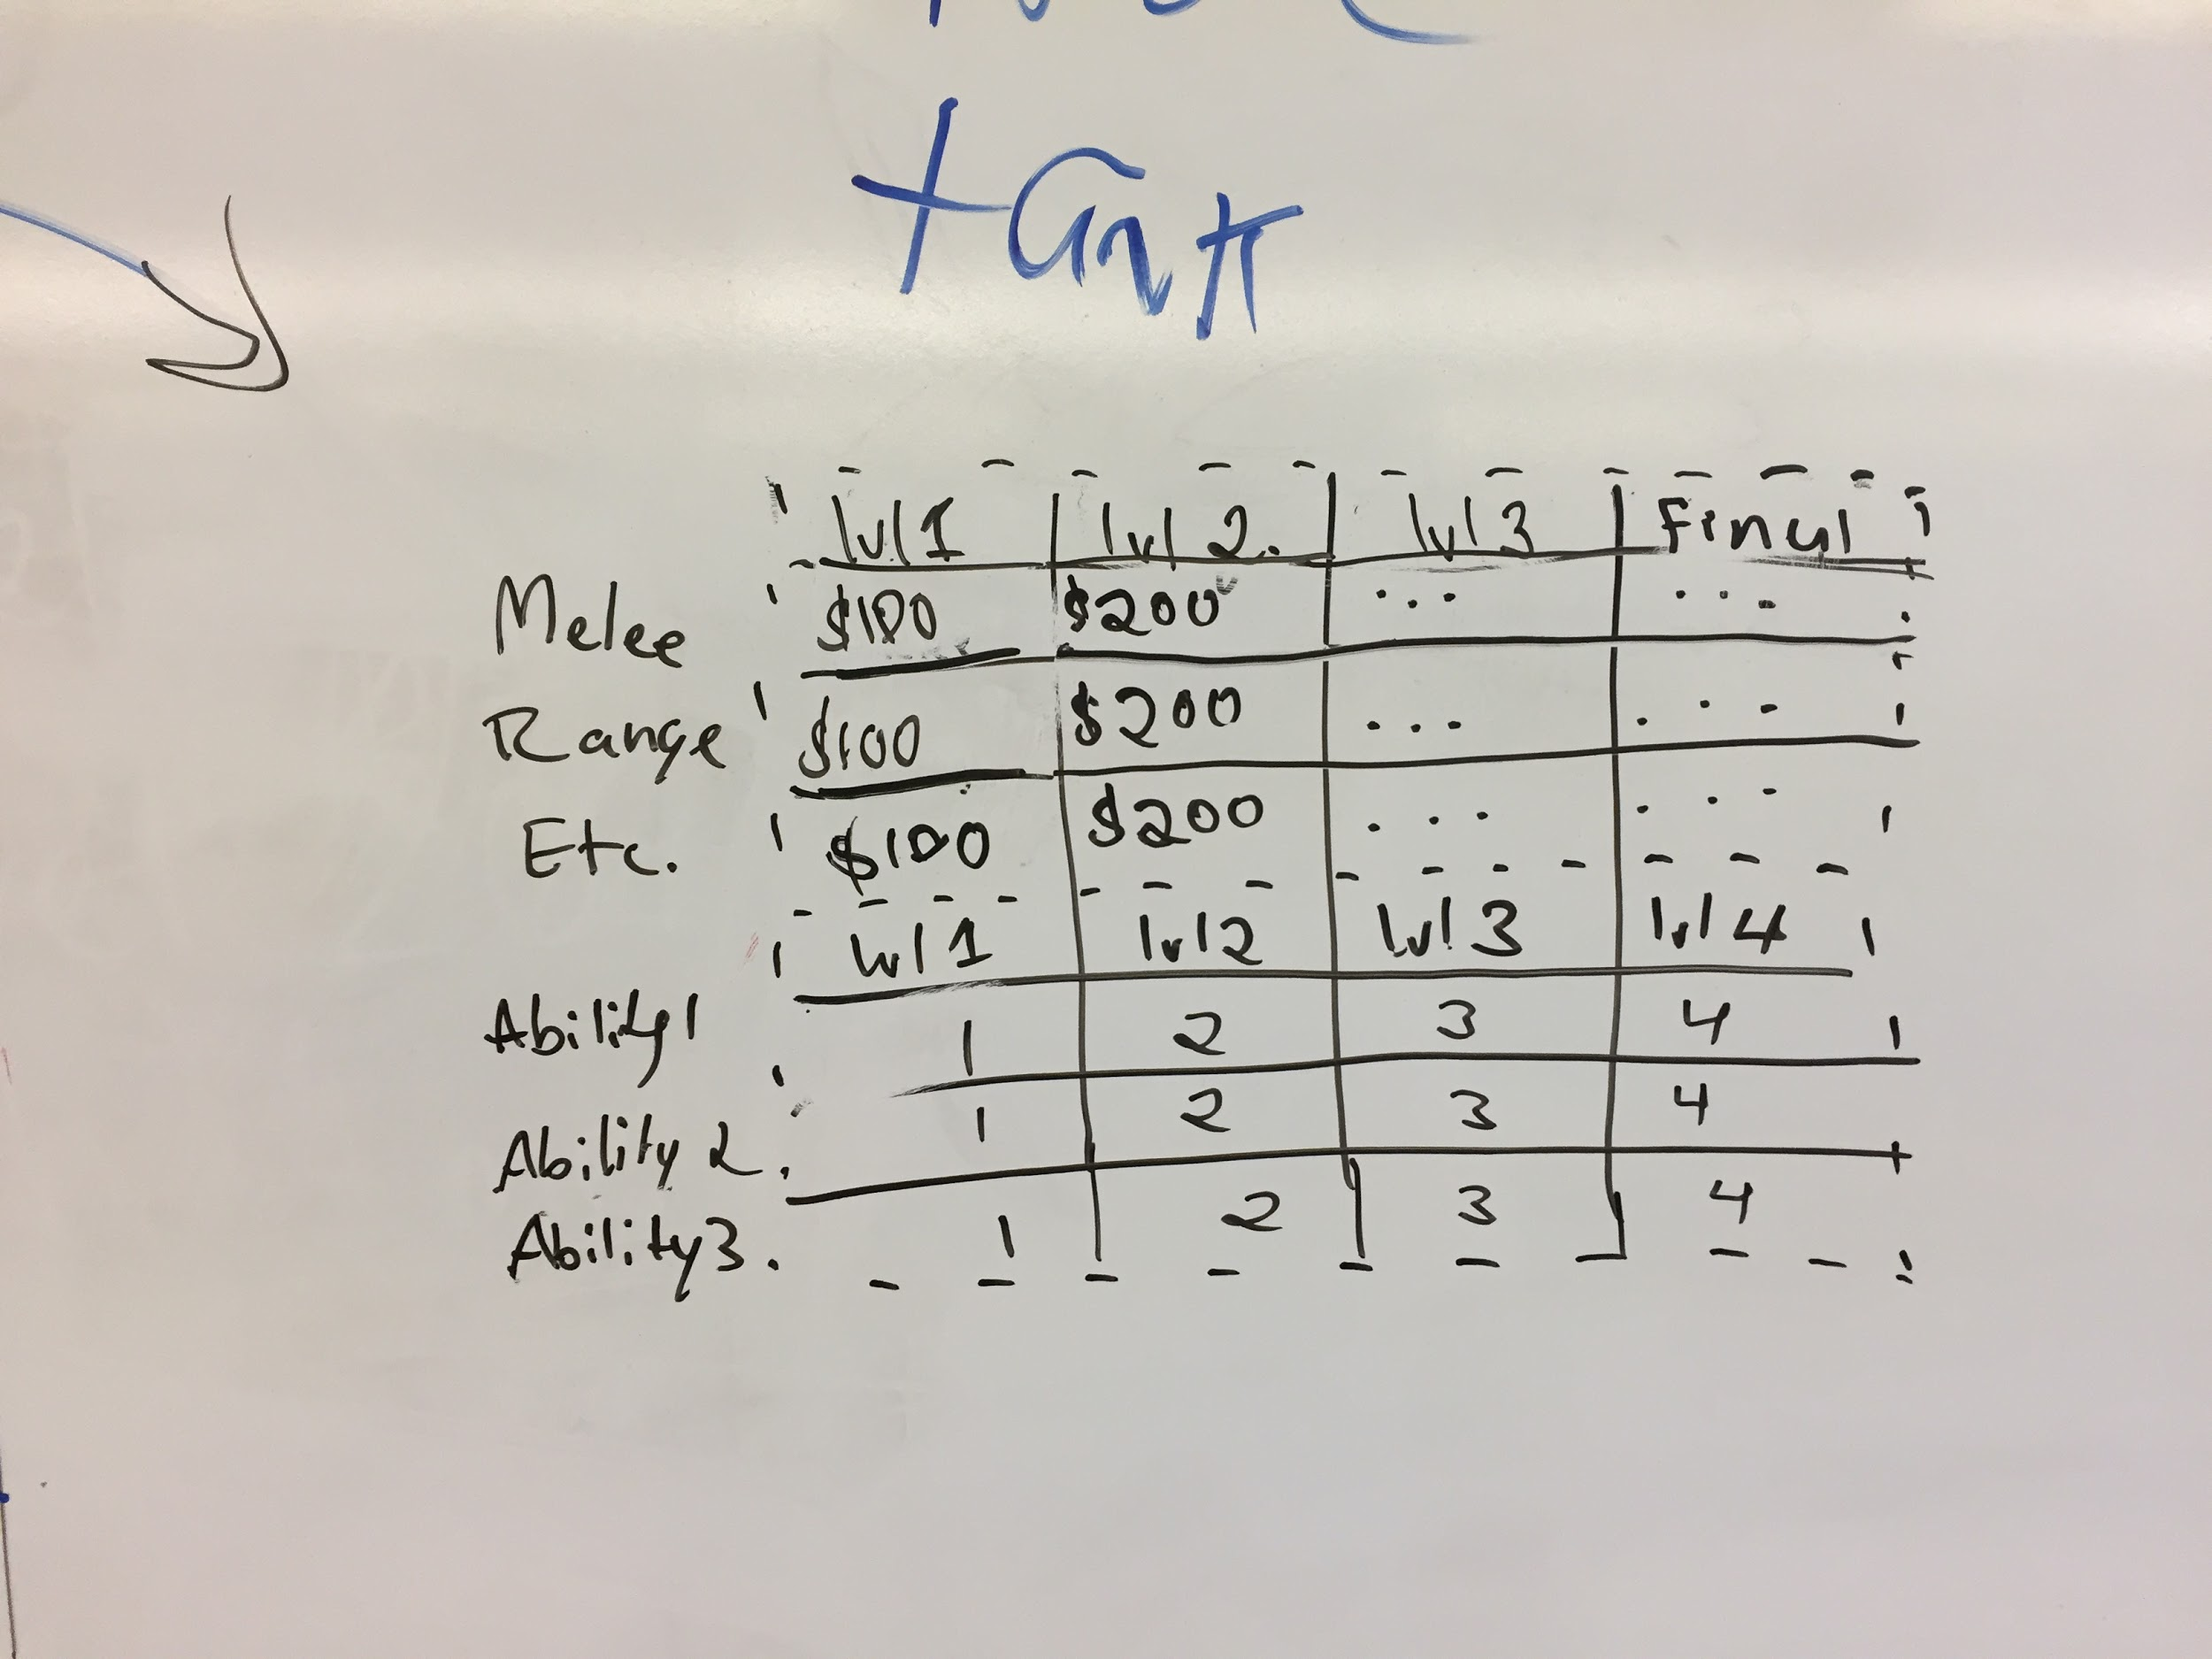 tank
lvl 1 lvl 2. lvl 3 Final
Melee $100 $200 ... ...
Range $100 $200 ... ...
Etc. $100 $200 ... ...
lvl 1 lvl 2 lvl 3 lvl 4
Ability 1 1 2 3 4
Ability 2. 1 2 3 4
Ability 3. 1 2 3 4